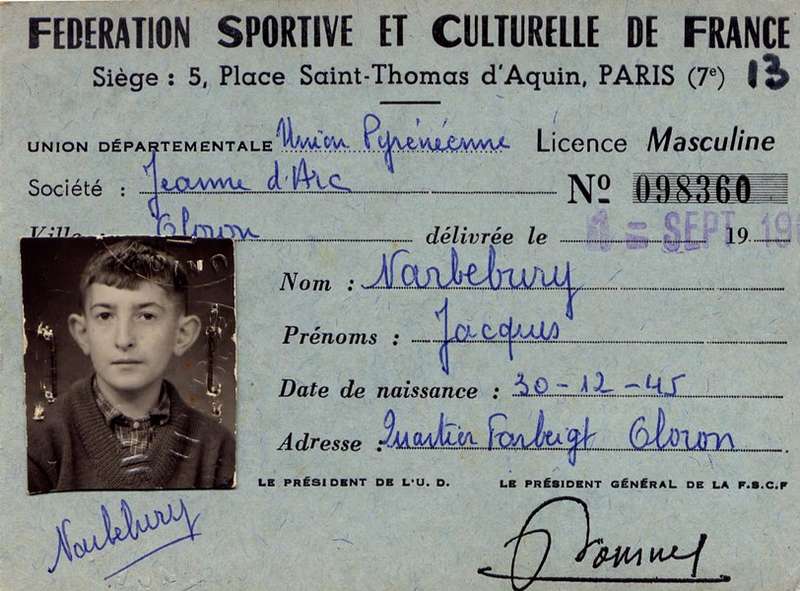 FEDERATION SPORTIVE ET CULTURELLE DE FRANCE
Siège : 5, Place Saint-Thomas d'Aquin, PARIS (7e) 13
UNION DÉPARTEMENTALE Union Pyrénéenne Licence Masculine
Société : Jeanne d'Arc Nº 098360
Ville : Oloron délivrée le 1 = SEPT 19
Nom : Narbebury
Prénoms : Jacques
Date de naissance : 30-12-45
Adresse : Quartier Oloron
LE PRÉSIDENT DE L'U. D. LE PRÉSIDENT GÉNÉRAL DE LA F.S.C.F
Narbebury